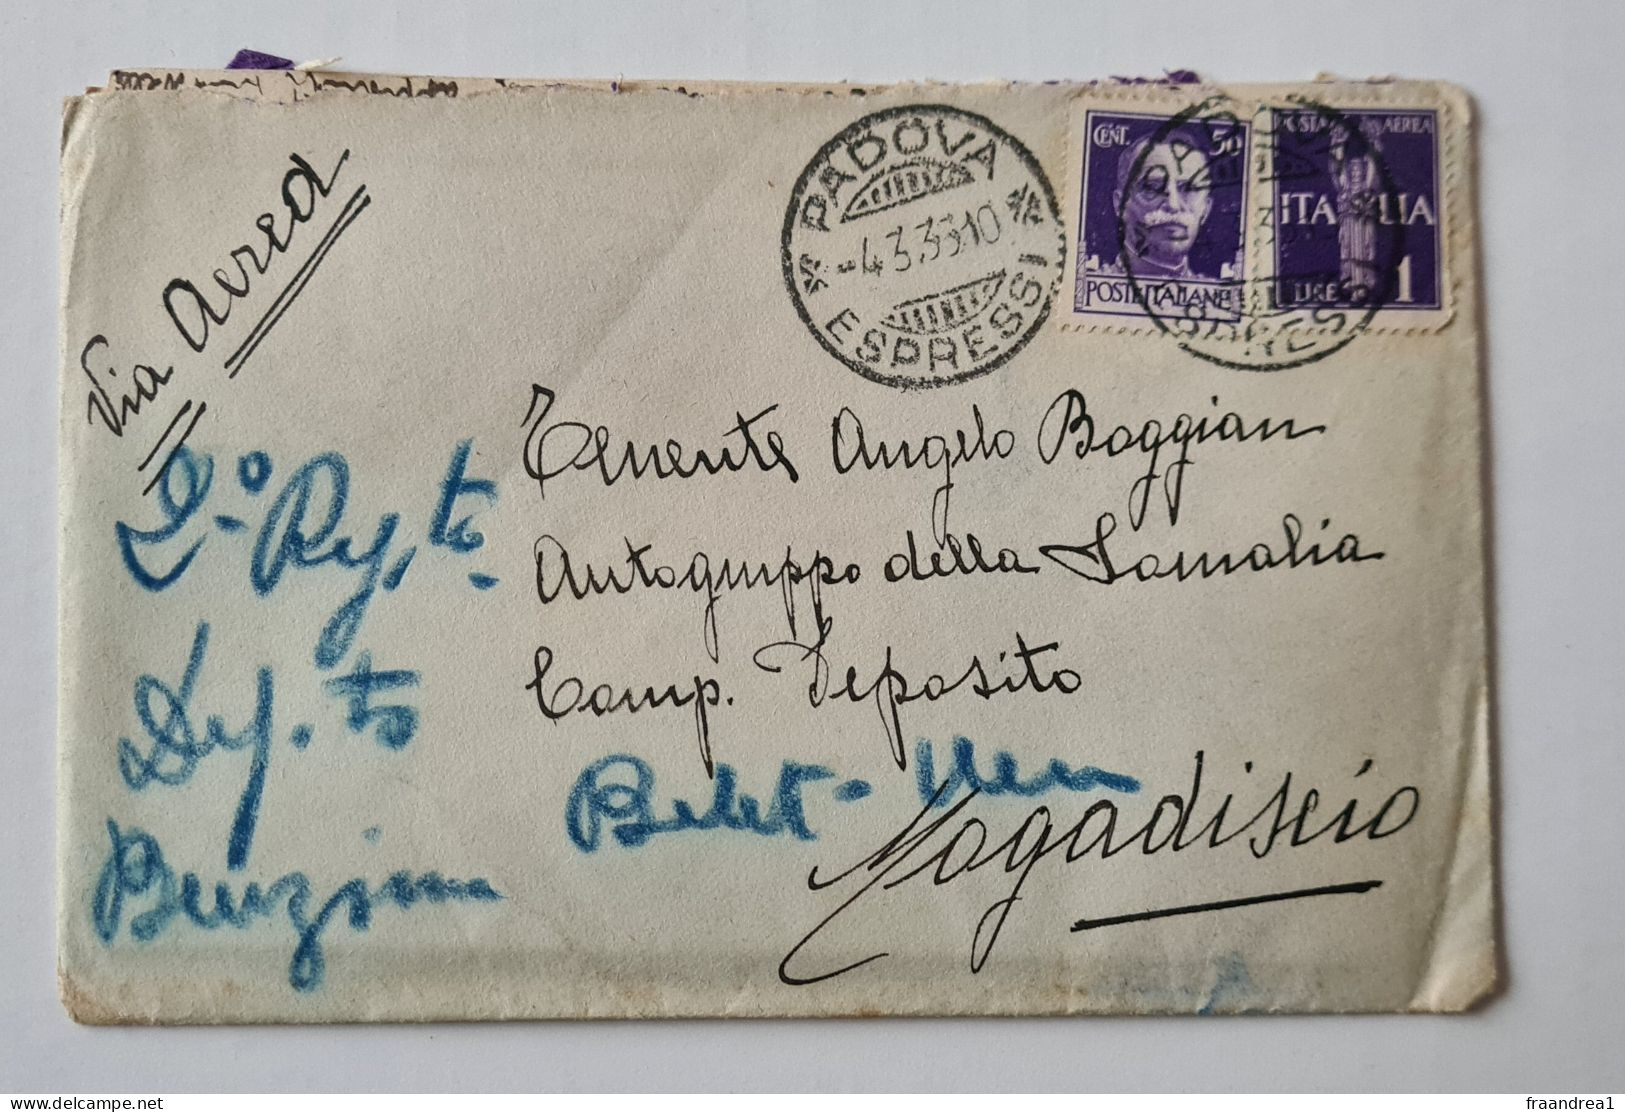 Via Aerea
PADOVA
-4.3.36.10
ESPRESSI
CENT. 50
POSTE ITALIANE
POSTA AEREA
ITALIA
LIRE 1
PADOVA
ESPRESSI
Tenente Angelo Boggian
Autogruppo della Somalia
Comp. Deposito
Mogadiscio
Belet-Uen
2.º Rep.to
Dep.to
Benzina
delcampe.net
fraandrea1